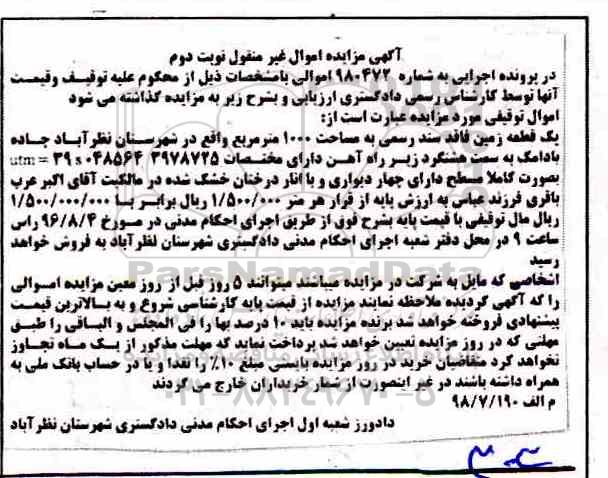 آگهی مزایده اموال غیر منقول نوبت دوم
در پرونده اجرایی به شماره ۹۸۰۴۷۲ اموالی بامشخصات ذیل از محکوم علیه توقیف وقیمت
آنها توسط کارشناس رسمی دادگستری ارزیابی و بشرح زیر به مزایده گذاشته می شود
اموال توقیفی مورد مزایده عبارت است از:
یک قطعه زمین فاقد سند رسمی به مساحت ۱۰۰۰ مترمربع واقع در شهرستان نظرآباد جاده
بادامک به سمت هشتگرد زیر راه آهن دارای مختصات ۳۹۷۸۷۲۵ ۰۴۸۵۶۴ utm = ۳۹ s
بصورت کاملا مسطح دارای چهار دیواری و با انار درختان خشک شده در مالکیت آقای اکبر عرب
باقری فرزند عباس به ارزش پایه از قرار هر متر ۱/۵۰۰/۰۰۰ ریال برابر با ۱/۵۰۰/۰۰۰/۰۰۰
ریال مال توقیفی با قیمت پایه بشرح فوق از طریق اجرای احکام مدنی در مورخ ۹۶/۸/۴ راس
ساعت ۹ در محل دفتر شعبه اجرای احکام مدنی دادگستری شهرستان نظرآباد به فروش خواهد
رسید
اشخاصی که مایل به شرکت در مزایده میباشند میتوانند ۵ روز قبل از روز معین مزایده اموالی
را که آگهی گردیده ملاحظه نمایند مزایده از قیمت پایه کارشناسی شروع و به بالاترین قیمت
پیشنهادی فروخته خواهد شد برنده مزایده باید ۱۰ درصد بها را فی المجلس و الباقی را طبق
مهلتی که در روز مزایده تعیین خواهد شد پرداخت نماید که مهلت مذکور از یک ماه تجاوز
نخواهد کرد متقاضیان خرید در روز مزایده بایستی مبلغ ۱۰٪ را نقدا و یا در حساب بانک ملی به
همراه داشته باشند در غیر اینصورت از شمار خریداران خارج می گردند
م الف ۹۸/۷/۱۹۰
دادورز شعبه اول اجرای احکام مدنی دادگستری شهرستان نظرآباد
ParsNamadData
۰۲۱-۸۸۳۴۹۶۷۰-۵